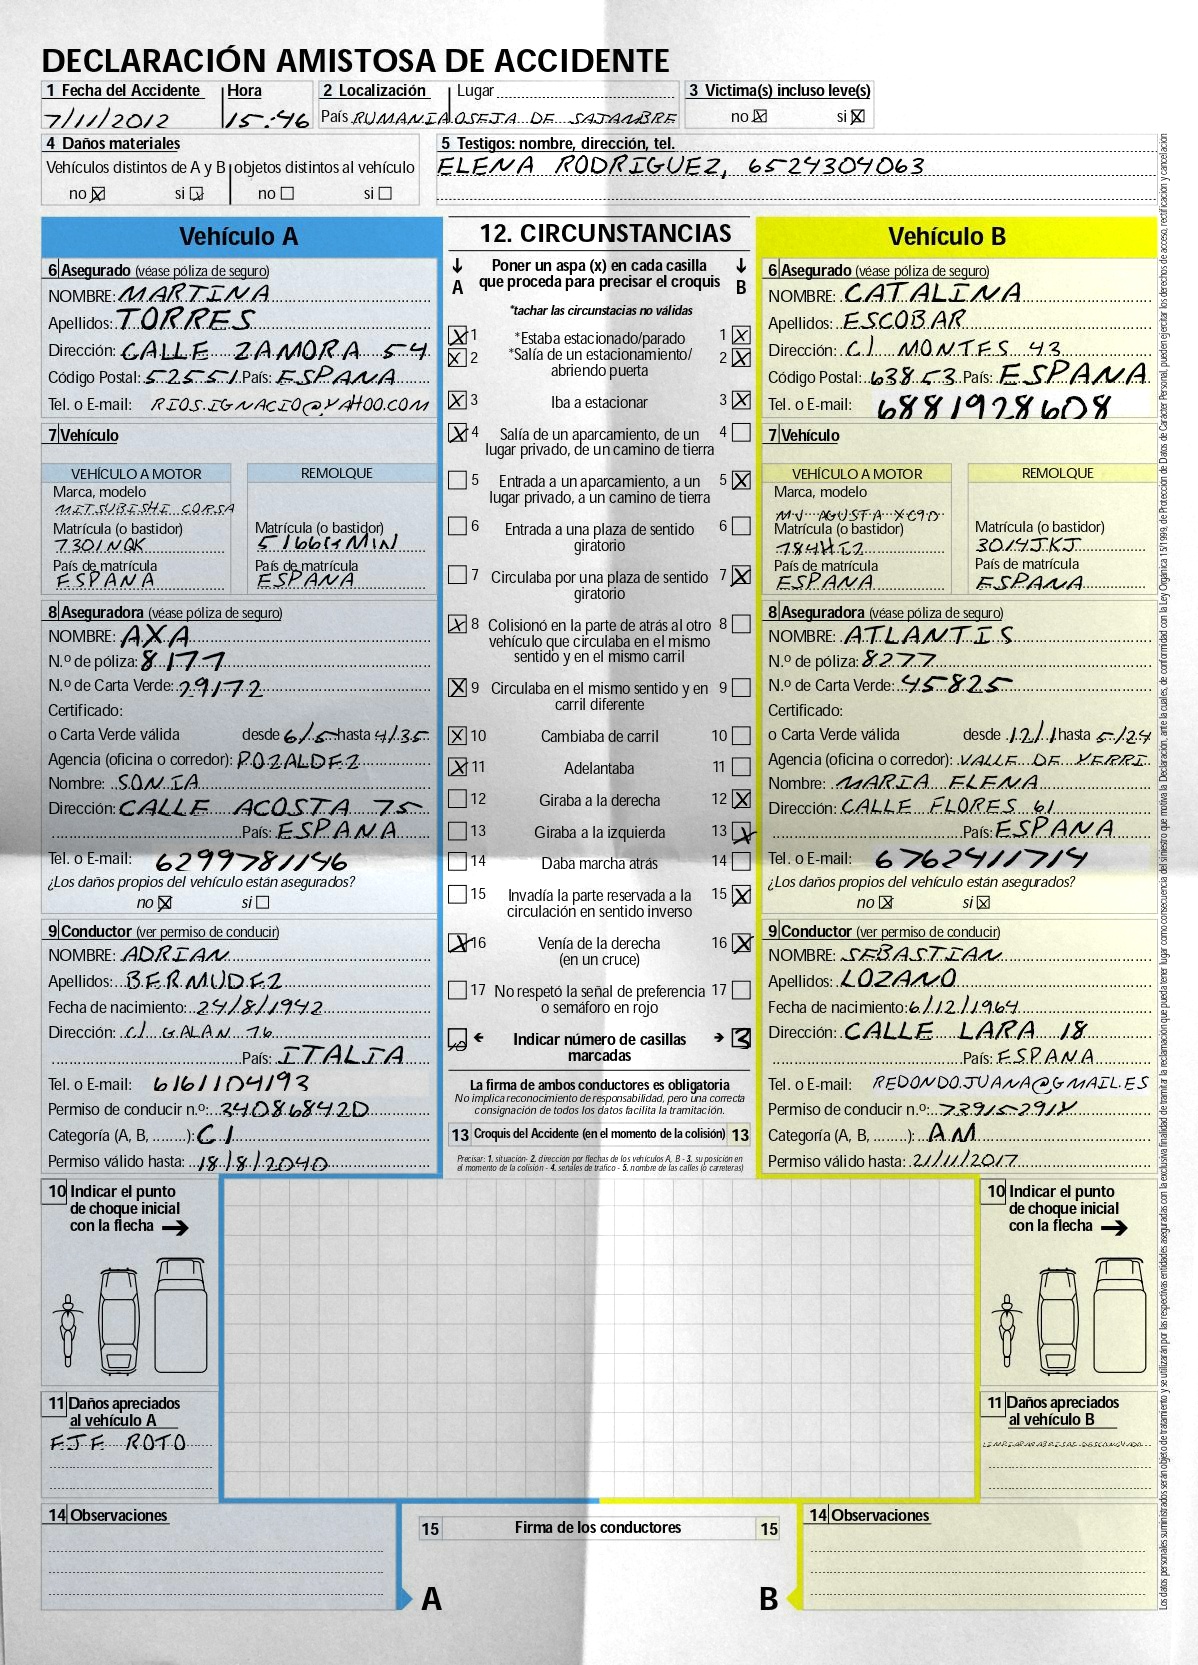 DECLARACIÓN AMISTOSA DE ACCIDENTE
1 Fecha del Accidente Hora 2 Localización Lugar 3 Victima(s) incluso leve(s)
7/11/2012 15:46 País RUMANIA OSEJA DE SAJAMBRE no si
4 Daños materiales 5 Testigos: nombre, dirección, tel.
Vehículos distintos de A y B objetos distintos al vehículo ELENA RODRIGUEZ, 6524304063
no si no si
Vehículo A
6 Asegurado (véase póliza de seguro)
NOMBRE: MARTINA
Apellidos: TORRES
Dirección: CALLE ZAMORA 54
Código Postal: 52551 País: ESPANA
Tel. o E-mail: RIOS.IGNACIO@YAHOO.COM
7 Vehículo
VEHÍCULO A MOTOR REMOLQUE
Marca, modelo
MITSUBISHI CORSA
Matrícula (o bastidor) Matrícula (o bastidor)
7301NQK 5166GMIN
País de matrícula País de matrícula
ESPANA ESPANA
8 Aseguradora (véase póliza de seguro)
NOMBRE: AXA
N.º de póliza: 8177
N.º de Carta Verde: 29172
Certificado:
o Carta Verde válida desde 6/5 hasta 4/35
Agencia (oficina o corredor): POZALDEZ
Nombre: SONIA
Dirección: CALLE ACOSTA 75
País: ESPANA
Tel. o E-mail: 6299781146
¿Los daños propios del vehículo están asegurados?
no si
9 Conductor (ver permiso de conducir)
NOMBRE: ADRIAN
Apellidos: BERMUDEZ
Fecha de nacimiento: 24/8/1942
Dirección: C/ GALAN 76
País: ITALIA
Tel. o E-mail: 6161104193
Permiso de conducir n.º: 34086842D
Categoría (A, B, ........): C1
Permiso válido hasta: 18/8/2040
12. CIRCUNSTANCIAS
A Poner un aspa (x) en cada casilla que proceda para precisar el croquis B
*tachar las circunstacias no válidas
1 *Estaba estacionado/parado 1
2 *Salía de un estacionamiento/ 2
abriendo puerta
3 Iba a estacionar 3
4 Salía de un aparcamiento, de un 4
lugar privado, de un camino de tierra
5 Entrada a un aparcamiento, a un 5
lugar privado, a un camino de tierra
6 Entrada a una plaza de sentido 6
giratorio
7 Circulaba por una plaza de sentido 7
giratorio
8 Colisionó en la parte de atrás al otro 8
vehículo que circulaba en el mismo
sentido y en el mismo carril
9 Circulaba en el mismo sentido y en 9
carril diferente
10 Cambiaba de carril 10
11 Adelantaba 11
12 Giraba a la derecha 12
13 Giraba a la izquierda 13
14 Daba marcha atrás 14
15 Invadía la parte reservada a la 15
circulación en sentido inverso
16 Venía de la derecha 16
(en un cruce)
17 No respetó la señal de preferencia 17
o semáforo en rojo
10 Indicar número de casillas 3
marcadas
La firma de ambos conductores es obligatoria
No implica reconocimiento de responsabilidad, pero una correcta
consignación de todos los datos facilita la tramitación.
13 Croquis del Accidente (en el momento de la colisión) 13
Precisar: 1. situación- 2. dirección por flechas de los vehículos A, B - 3. su posición en
el momento de la colisión - 4. señales de tráfico - 5. nombre de las calles (o carreteras)
Vehículo B
6 Asegurado (véase póliza de seguro)
NOMBRE: CATALINA
Apellidos: ESCOBAR
Dirección: C/ MONTES 43
Código Postal: 63853 País: ESPANA
Tel. o E-mail: 6881928608
7 Vehículo
VEHÍCULO A MOTOR REMOLQUE
Marca, modelo
MV AGUSTA XC90
Matrícula (o bastidor) Matrícula (o bastidor)
3014JKJ
País de matrícula País de matrícula
ESPANA ESPANA
8 Aseguradora (véase póliza de seguro)
NOMBRE: ATLANTIS
N.º de póliza: 8277
N.º de Carta Verde: 45825
Certificado:
o Carta Verde válida desde 12/1 hasta 5/24
Agencia (oficina o corredor): VALLE DE YERRI
Nombre: MARIA ELENA
Dirección: CALLE FLORES 61
País: ESPANA
Tel. o E-mail: 6762411714
¿Los daños propios del vehículo están asegurados?
no si
9 Conductor (ver permiso de conducir)
NOMBRE: SEBASTIAN
Apellidos: LOZANO
Fecha de nacimiento: 6/12/1964
Dirección: CALLE LARA 18
País: ESPANA
Tel. o E-mail: REDONDOJUANA@GMAIL.ES
Permiso de conducir n.º: 73915291X
Categoría (A, B, ........): AM
Permiso válido hasta: 21/11/2017
10 Indicar el punto
de choque inicial
con la flecha
11 Daños apreciados
al vehículo A
EJE ROTO
14 Observaciones
10 Indicar el punto
de choque inicial
con la flecha
11 Daños apreciados
al vehículo B
LIMPIAPARABRISAS DESCONCHADO
14 Observaciones
15 Firma de los conductores 15
A B
Los datos personales suministrados serán objeto de tratamiento y se utilizarán por las respectivas entidades aseguradas con la exclusiva finalidad de tramitar la reclamación que pueda tener lugar como consecuencia del siniestro que motiva la Declaración, ante la cuales, de conformidad con la Ley Orgánica 15/1999, de Protección de Datos de Carácter Personal, pueden ejercitar los derechos de acceso, rectificación y cancelación